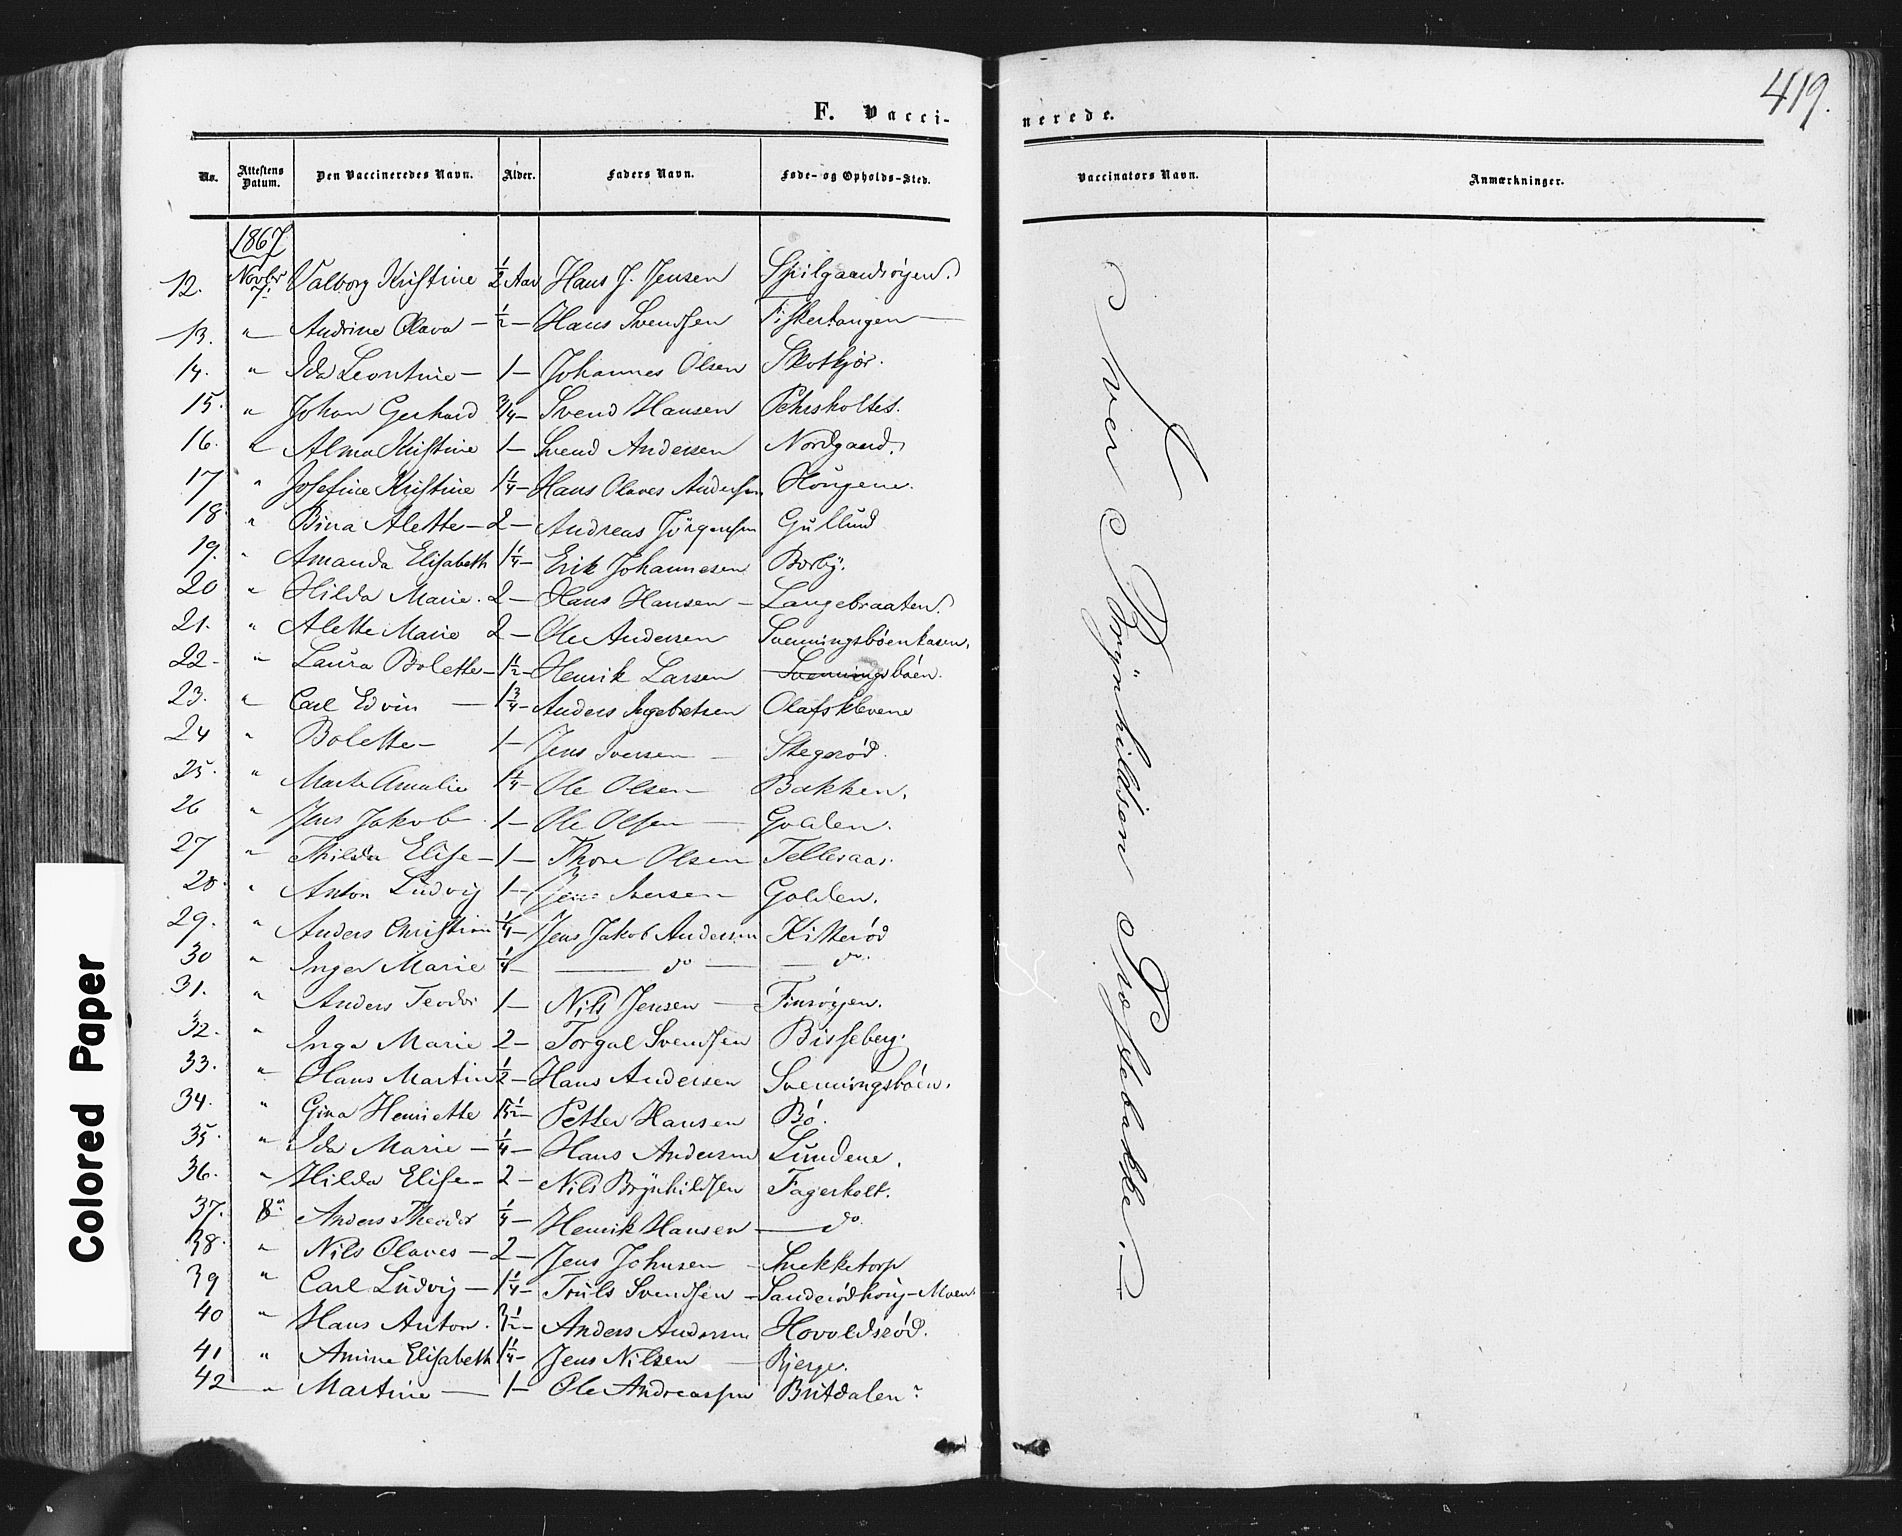 419.
F. Vacci-nerede.
No. Attestens Datum. Den Vaccineredes Navn. Alder. Faders Navn. Føde- og Opholds-Sted. Vaccinators Navn. Anmærkninger.
1867
12. Novbr 7. Valborg Kristine ½ Aar Hans J. Jensen
13. " Andrine Olava — ½ — Hans Svendsen Fiskertangen —
14. " Ida Leontine — 1 — Johannes Olsen Skotkjær.
15. " Johan Gerhard ¾ — Svend Hansen Pehrsholtet.
16. " Alma Kristine 1 — Svend Andersen Nordgaard.
17 " Josefine Kristine 1¼ — Hans Olaves Andersen Hougene.
18 " Bina Alette — 2 — Andreas Jörgensen Gullund
19. " Amanda Elisabeth 1¼ — Erik Johannesen Borby.
20 " Hilda Marie. 2 — Hans Hansen — Langebraaten.
21. " Alette Marie 2 — Ole Andersen Svenningsbøenkasen.
22 - " Laura Bolette — 1½ — Henrik Larsen Svenningsbøen.
23. " Carl Edvin — 1¾ — Anders Ingebretsen Olafsklevene
24 " Bolette — 1 — Jens Iversen — Stegsrød.
25. " Marte Amalie 1¼ — Ole Olsen — Bakken.
26 " Jens Jakob. 1 — Ole Olsen — Golden.
27 " Thilda Elise — 1 — Thore Olsen Telleraas.
28. " Anton Ludvig 1 — Jens Iversen — Golden.
29. " Anders Christian ¼ — Jens Jakob Andersen Kitterød
30 " Inger Marie ¼ — — do — — do.
31. " Anders Teodor 1 — Nils Jensen — Finsrøyen.
32. " Inga Marie 2 — Torgal Svendsen Bisseberg.
33. " Hans Martin ½ — Hans Andersen Svenningsbøen.
34. " Gina Henriette ½ — Petter Hansen Bø.
35. " Ida Marie — ¼ — Hans Andersen Lundene.
36. " Hilda Elise — 2 — Nils Brynhildsen Fagerholt.
37. 8de Anders Theodor ¼ — Henrik Hansen — do.
38. " Nils Olaves — 2 — Jens Johnsen — Snekketorp
39 " Carl Ludvig — 1¼ — Truls Svendsen — Sanderødhoug-Moen.
40 " Hans Anton. ½ — Anders Andersen Hovoldsrød.
41 " Amine Elisabeth 1¼ — Jens Nilsen — Bjerge.
42 — " Martine — 1 — Ole Andreassen Britdalen.
Iver Brynhildsen Præstebakke.
Colored Paper